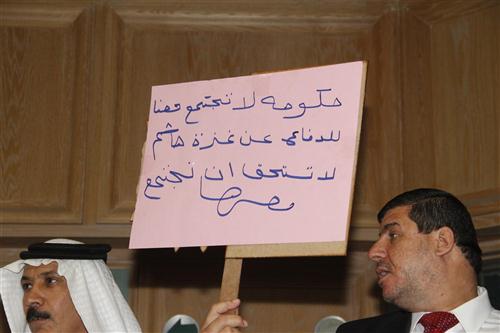 حكومة لا تجتمع معنا
للدفاع عن غزة هاشم
لا تستحق ان نجتمع
معها